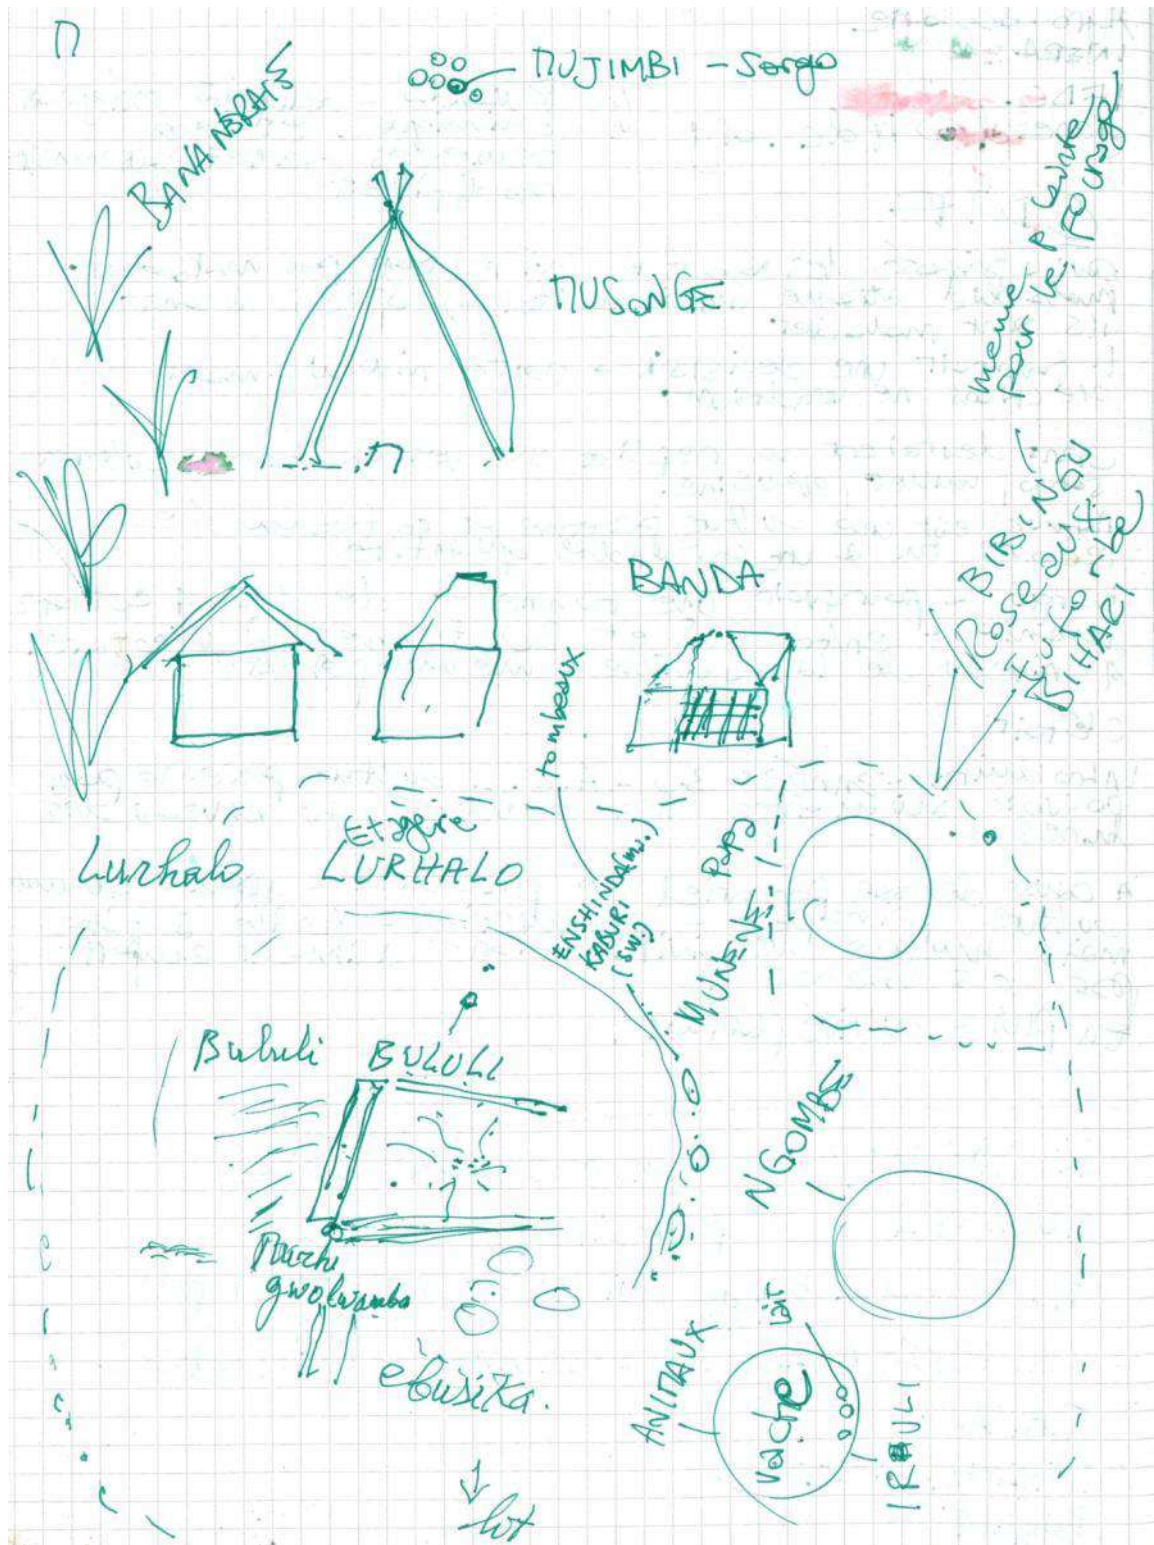 MUJIMBI - Sorgo
BANANERAIS
MUSONGE
meme plante
pour le pâturage
BIBINGU
Roseaux
Euforbe
BIHARI
BANDA
tombeaux
Etagere
Lurhalo
LURHALO
ENSHINDA (mv.)
KABURI
(sw.)
MUNENE
Papa
Bululi
BULULI
NGOMBE
Murhi
gwolwamba
ebusika.
ANIMAUX
lait
vache
IRAULI